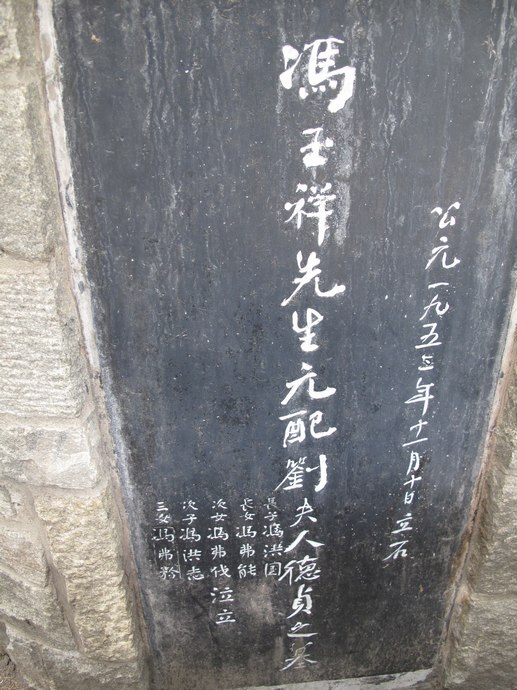 公元一九五三年十一月十日立石
馮玉祥先生元配劉夫人德貞之墓
長子馮洪国
長女馮弗能
次女馮弗伐
次子馮洪志
三女馮弗矜
泣立